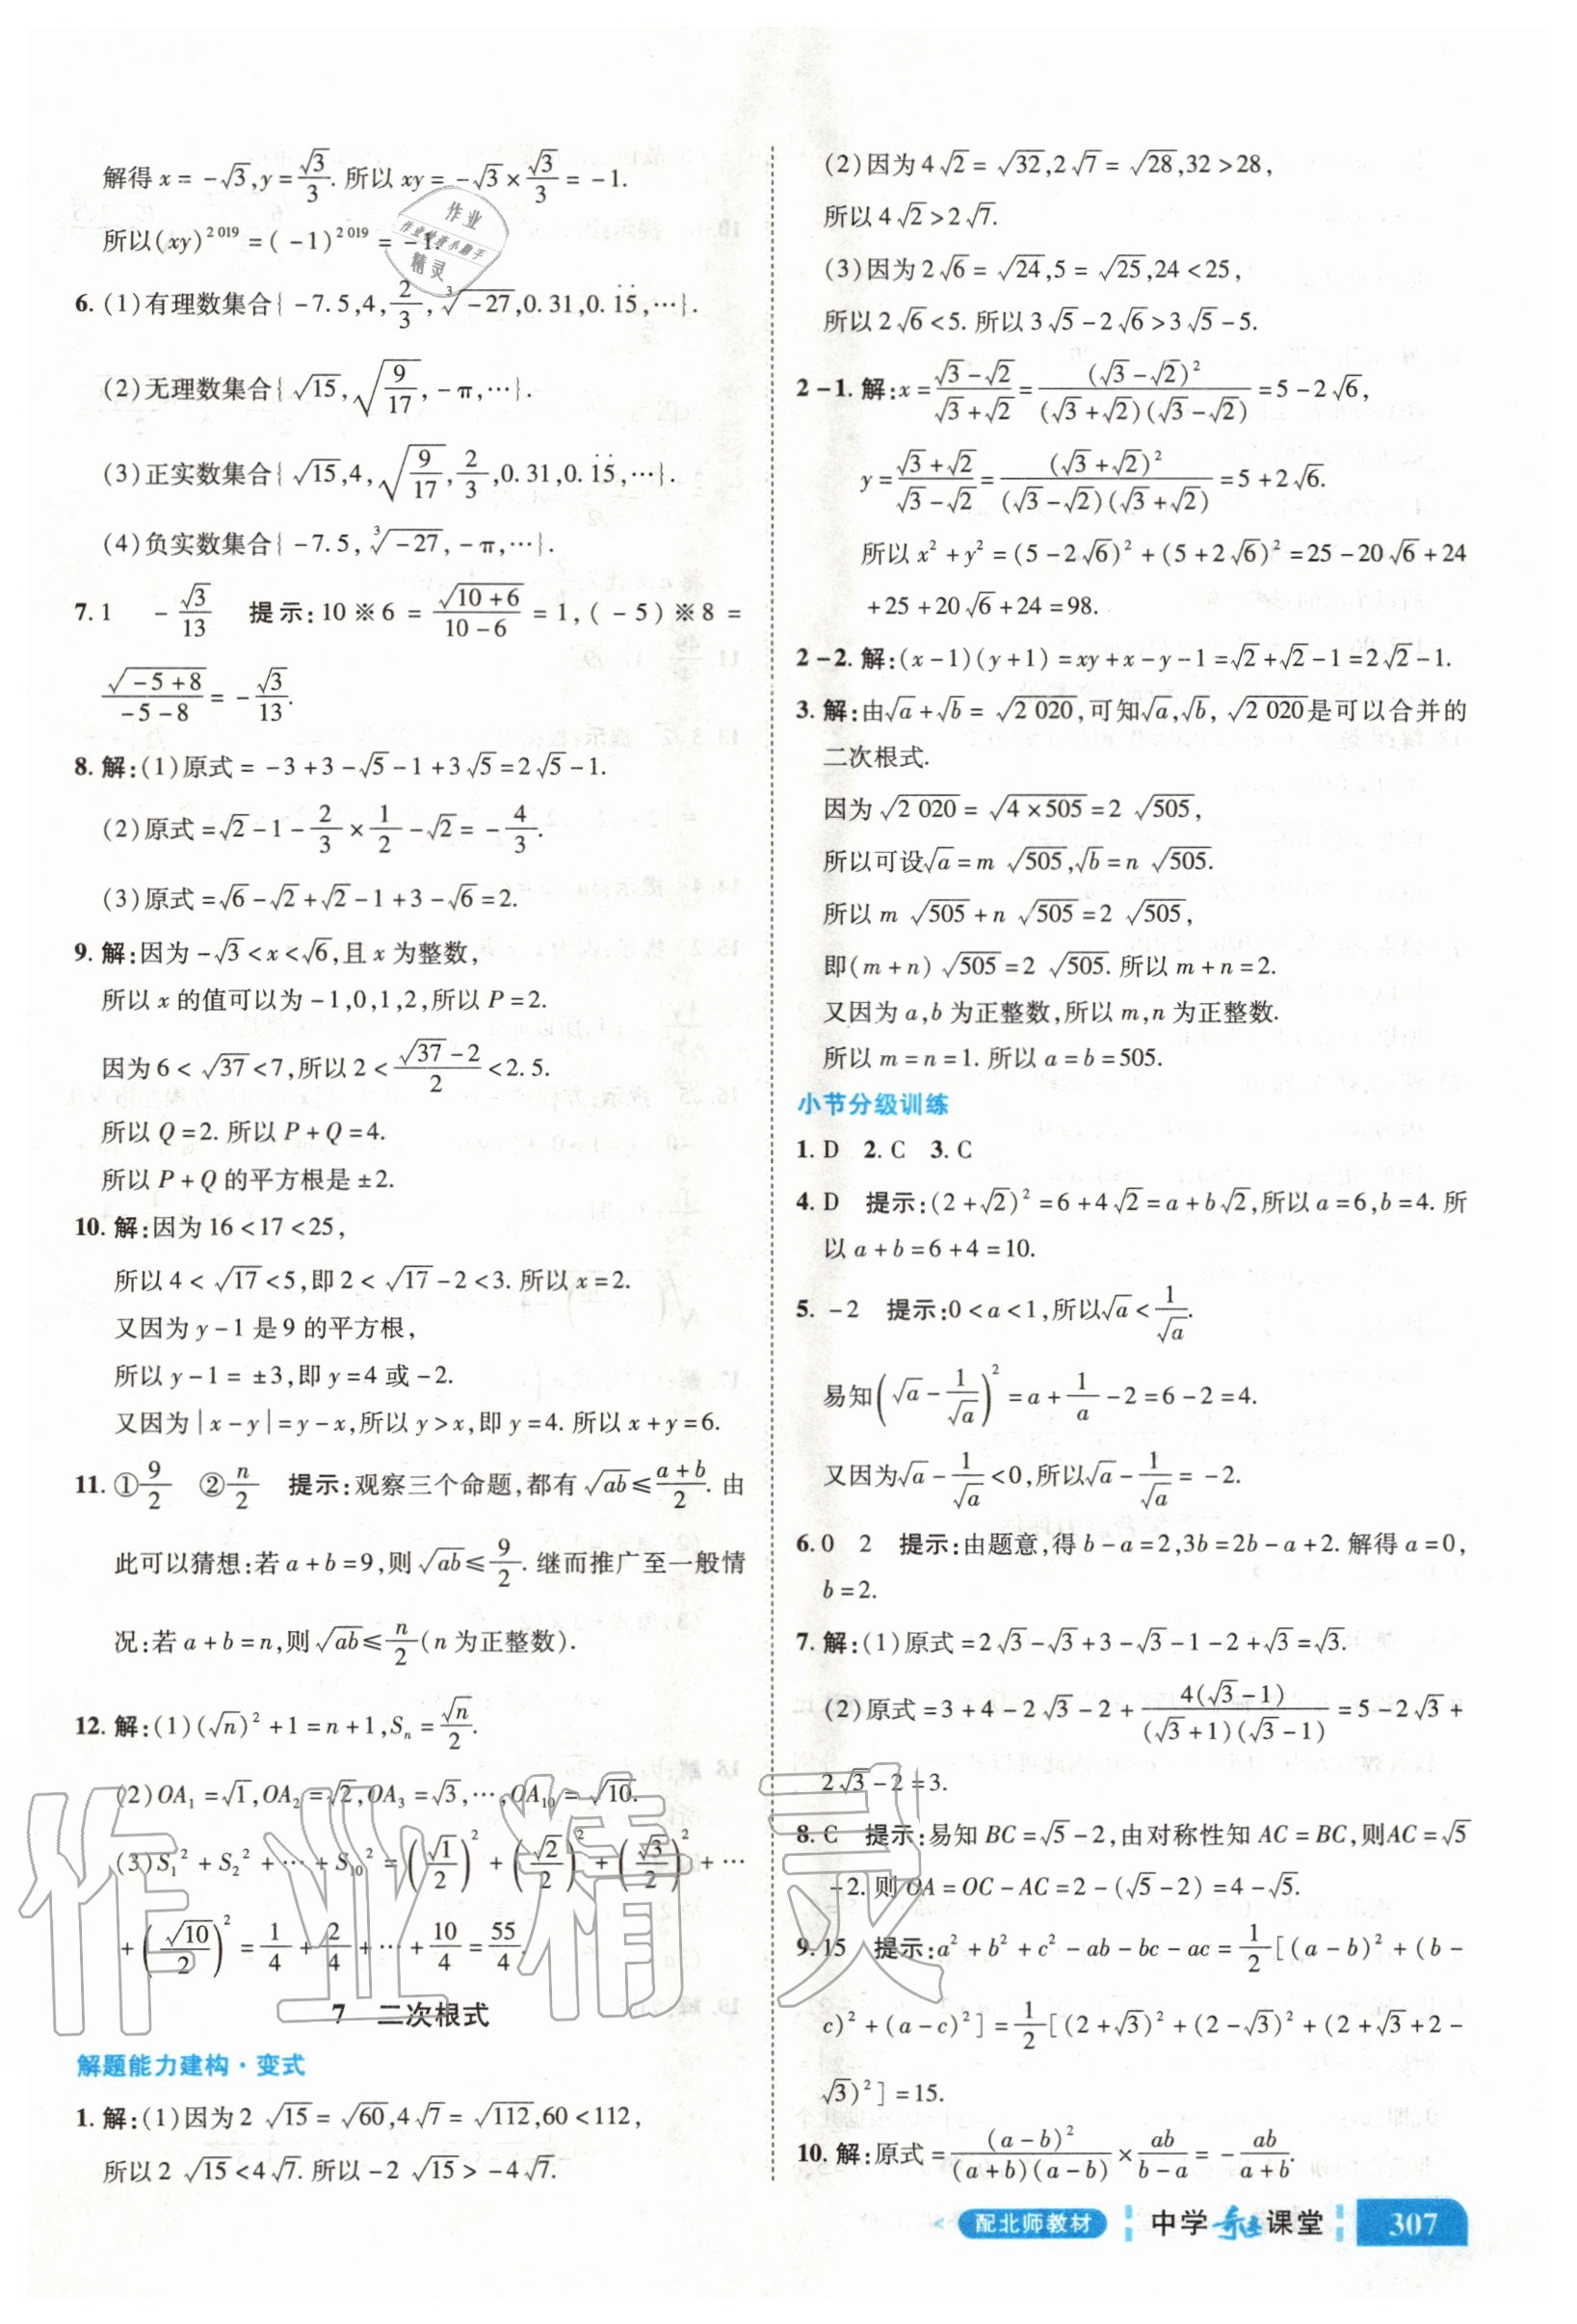 解得 x = -√3, y = √3/3. 所以 xy = -√3 × √3/3 = -1.
所以(xy)^2 019 = (-1)^2 019 = -1.
6. (1)有理数集合{ -7.5,4,2/3,∛-27,0.31,0.1̇5̇,…}.
(2)无理数集合{ √15,√(9/17),-π,…}.
(3)正实数集合{ √15,4,√(9/17),2/3,0.31,0.1̇5̇,…}.
(4)负实数集合{ -7.5,∛-27,-π,…}.
7. 1 -√3/13 提示:10※6 = √(10+6)/(10-6) = 1,(-5)※8 =
√(-5+8)/(-5-8) = -√3/13.
8. 解:(1)原式 = -3+3-√5-1+3√5=2√5-1.
(2)原式=√2-1-2/3×1/2-√2= -4/3.
(3)原式=√6-√2+√2-1+3-√6=2.
9. 解:因为-√3<x<√6,且 x 为整数,
所以 x 的值可以为-1,0,1,2,所以 P=2.
因为6<√37<7,所以2<(√37-2)/2<2.5.
所以 Q=2. 所以 P+Q=4.
所以 P+Q 的平方根是±2.
10. 解:因为16<17<25,
所以4<√17<5,即2<√17-2<3. 所以 x=2.
又因为 y-1 是9的平方根,
所以 y-1= ±3,即 y=4 或-2.
又因为|x-y|=y-x,所以 y>x,即 y=4. 所以 x+y=6.
11. ①9/2 ②n/2 提示:观察三个命题,都有√ab≤(a+b)/2. 由
此可以猜想:若 a+b=9,则√ab≤9/2. 继而推广至一般情
况:若 a+b=n,则√ab≤n/2(n 为正整数).
12. 解:(1)(√n)²+1=n+1,Sₙ=√n/2.
(2)OA₁=√1,OA₂=√2,OA₃=√3,…,OA₁₀=√10.
(3)S₁²+S₂²+…+S₁₀²=(√1/2)²+(√2/2)²+(√3/2)²+…
+(√10/2)²=1/4+2/4+…+10/4=55/4.
7 二次根式
解题能力建构·变式
1. 解:(1)因为2√15=√60,4√7=√112,60<112,
所以2√15<4√7. 所以-2√15>-4√7.
(2)因为4√2=√32,2√7=√28,32>28,
所以4√2>2√7.
(3)因为2√6=√24,5=√25,24<25,
所以2√6<5. 所以3√5-2√6>3√5-5.
2-1. 解:x=(√3-√2)/(√3+√2)=(√3-√2)²/((√3+√2)(√3-√2))=5-2√6,
y=(√3+√2)/(√3-√2)=(√3+√2)²/((√3-√2)(√3+√2))=5+2√6.
所以 x²+y²=(5-2√6)²+(5+2√6)²=25-20√6+24
+25+20√6+24=98.
2-2. 解:(x-1)(y+1)=xy+x-y-1=√2+√2-1=2√2-1.
3. 解:由√a+√b=√2 020,可知√a,√b,√2 020是可以合并的
二次根式.
因为√2 020=√(4×505)=2√505,
所以可设√a=m√505,√b=n√505.
所以 m√505+n√505=2√505,
即(m+n)√505=2√505. 所以 m+n=2.
又因为 a,b 为正整数,所以 m,n 为正整数.
所以 m=n=1. 所以 a=b=505.
小节分级训练
1. D 2. C 3. C
4. D 提示:(2+√2)²=6+4√2=a+b√2,所以 a=6,b=4. 所
以 a+b=6+4=10.
5. -2 提示:0<a<1,所以√a<1/√a.
易知(√a-1/√a)²=a+1/a-2=6-2=4.
又因为√a-1/√a<0,所以√a-1/√a= -2.
6. 0 2 提示:由题意,得 b-a=2,3b=2b-a+2. 解得 a=0,
b=2.
7. 解:(1)原式=2√3-√3+3-√3-1-2+√3=√3.
(2)原式=3+4-2√3-2+4(√3-1)/((√3+1)(√3-1))=5-2√3+
2√3-2=3.
8. C 提示:易知 BC=√5-2,由对称性知 AC=BC,则AC=√5
-2. 则 OA=OC-AC=2-(√5-2)=4-√5.
9. 15 提示:a²+b²+c²-ab-bc-ac=1/2[(a-b)²+(b-
c)²+(a-c)²]=1/2[(2+√3)²+(2-√3)²+(2+√3+2-
√3)²]=15.
10. 解:原式=(a-b)²/((a+b)(a-b))×ab/(b-a)= -ab/(a+b).
配北师教材 中学奇迹课堂 307
作业
作业检查小助手
精灵
作业精灵